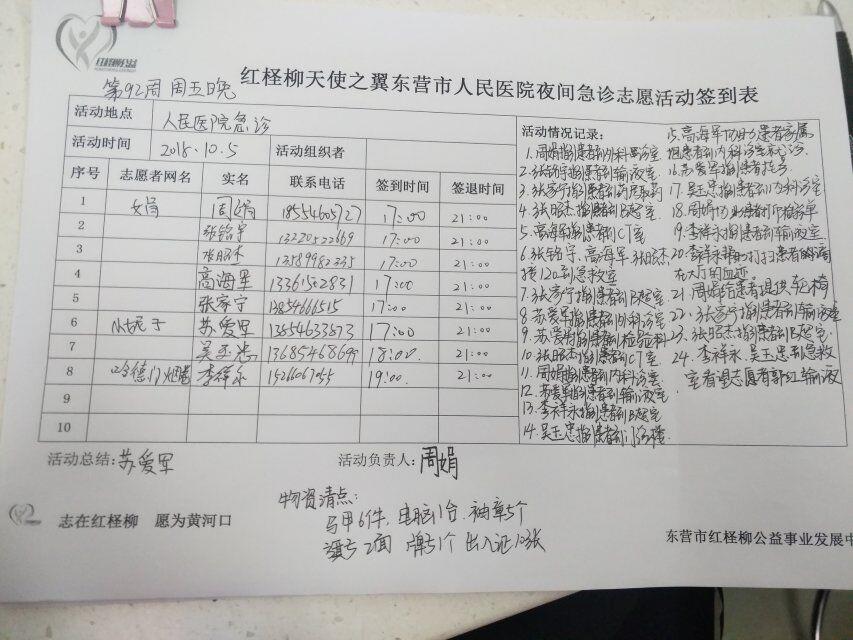 红柽柳天使之翼东营市人民医院夜间急诊志愿活动签到表
第92周 周五晚
活动地点 人民医院急诊
活动时间 2018.10.5 活动组织者
序号 志愿者网名 实名 联系电话 签到时间 签退时间
1 文娟 周娟 18554605727 17:00 21:00
2 张铭军 13220522669 17:00 21:00
3 张昭杰 13589982335 17:00 21:00
4 高海军 13361502831 17:00 21:00
5 张家宁 13854666515 17:00 21:00
6 苏爱军 13854633573 17:00 21:00
7 吴玉忠 13685468699 18:00 21:00
8 哈德门 李祥永 15266067055 19:00 21:00
9
10
活动情况记录:
1.周娟指引患者到外科诊室
2.张铭宇指引患者到输液室
3.张家宁指引患者到药房取药
4.张昭杰指引患者到B超室
5.高海军指引患者到CT室
6.张铭宇、高海军、张昭杰
接120到急救室
7.张家宁指引患者到B超室
8.苏爱军指引患者到外科诊室
9.苏爱军指引患者到检验科
10.张昭杰指引患者到CT室
11.周娟指引患者到内科诊室
12.苏爱军指引患者到输液室
13.李祥永指引患者到B超室
14.吴玉忠指引患者到门诊楼
15.高海军协助患者家属
推患者到内科诊室就诊
16.苏爱军指引患者
17.吴玉忠指引患者到内科诊室
18.周娟协助患者打印检验单
19.李祥永指引患者到输液室
20.李祥永帮助打扫患者
在大厅的血迹
21.周娟给患者提供轮椅
22.张家宁指引患者到输液室
23.张昭杰指引患者到B超室
24.李祥永、吴玉忠到急救
室看望志愿者郭红输液
活动总结:苏爱军 活动负责人:周娟
物资清点:
马甲6件,电脑1台,袖章5个
2面 牌子1个 出入证10张
志在红柽柳 愿为黄河口
东营市红柽柳公益事业发展中